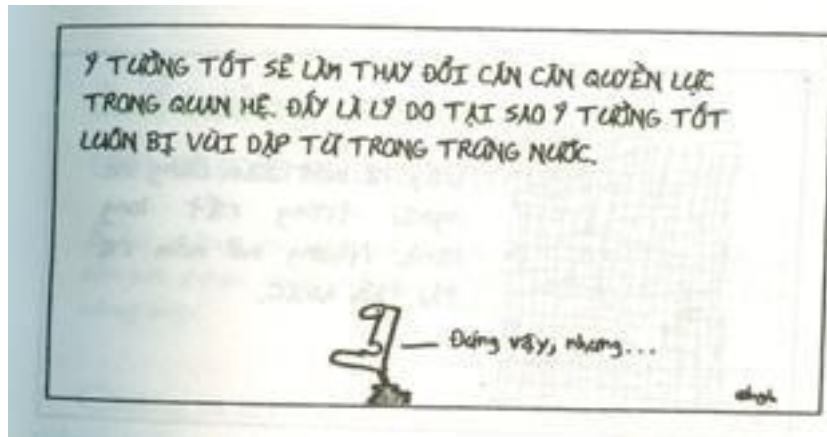 Ý TƯỞNG TỐT SẼ LÀM THAY ĐỔI CÁN CÂN QUYỀN LỰC
TRONG QUAN HỆ. ĐẤY LÀ LÝ DO TẠI SAO Ý TƯỞNG TỐT
LUÔN BỊ VÙI DẬP TỪ TRONG TRỨNG NƯỚC.
Đúng vậy, nhưng...